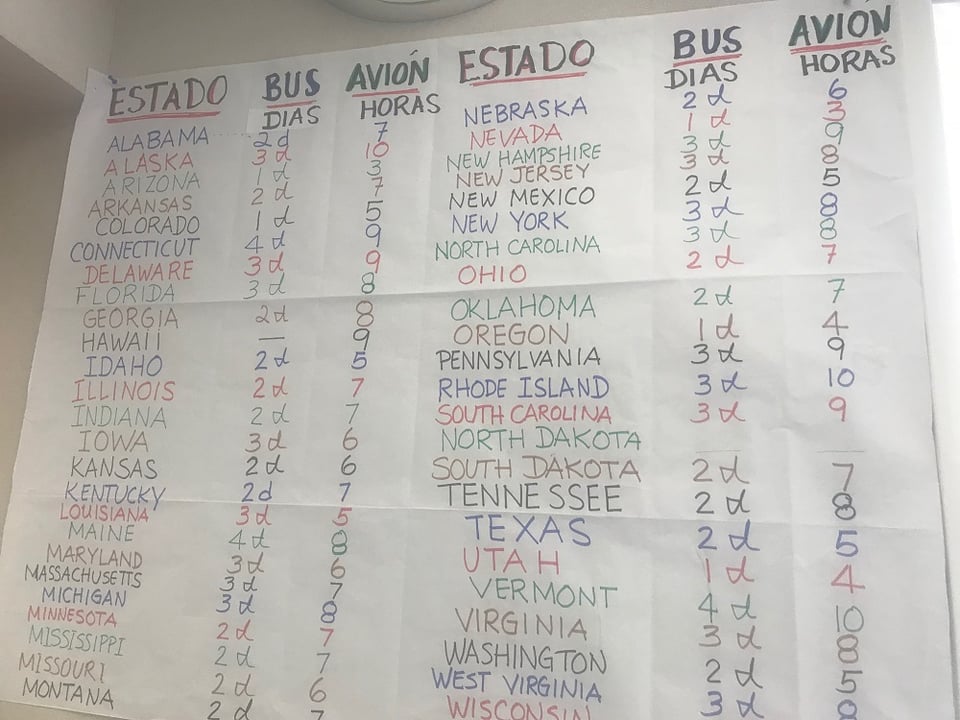 ESTADO BUS AVIÓN
DIAS HORAS
ALABAMA 2 d 7
ALASKA 3 d 10
ARIZONA 1 d 3
ARKANSAS 2 d 7
COLORADO 1 d 5
CONNECTICUT 4 d 9
DELAWARE 3 d 9
FLORIDA 3 d 8
GEORGIA 2 d 8
HAWAII — 9
IDAHO 2 d 5
ILLINOIS 2 d 7
INDIANA 2 d 7
IOWA 3 d 6
KANSAS 2 d 6
KENTUCKY 2 d 7
LOUISIANA 3 d 5
MAINE 4 d 8
MARYLAND 3 d 6
MASSACHUSETTS 3 d 7
MICHIGAN 3 d 8
MINNESOTA 2 d 7
MISSISSIPPI 2 d 7
MISSOURI 2 d 6
MONTANA 2 d 7
ESTADO BUS AVIÓN
DIAS HORAS
NEBRASKA 2 d 6
NEVADA 1 d 3
NEW HAMPSHIRE 3 d 9
NEW JERSEY 3 d 8
NEW MEXICO 2 d 5
NEW YORK 3 d 8
NORTH CAROLINA 3 d 8
OHIO 2 d 7
OKLAHOMA 2 d 7
OREGON 1 d 4
PENNSYLVANIA 3 d 9
RHODE ISLAND 3 d 10
SOUTH CAROLINA 3 d 9
NORTH DAKOTA
SOUTH DAKOTA 2 d 7
TENNESSEE 2 d 8
TEXAS 2 d 5
UTAH 1 d 4
VERMONT 4 d 10
VIRGINIA 3 d 8
WASHINGTON 2 d 5
WEST VIRGINIA 3 d
WISCONSIN